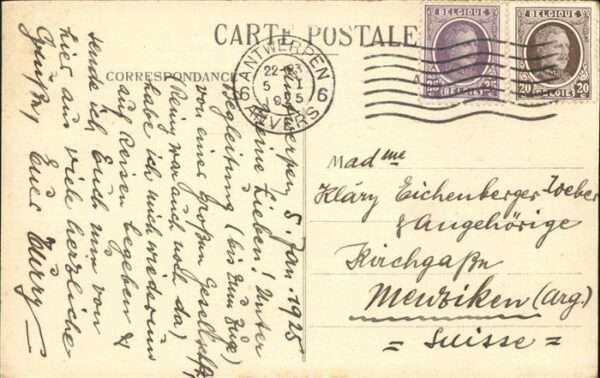 CARTE POSTALE
CORRESPONDANCE
ANTWERPEN
22-23
5 I
19 5
6 6
ANVERS
BELGIQUE
25 25
BELGIË
BELGIQUE
20 20
BELGIË
Antwerpen, 5. Jan. 1925
Meine Lieben! Unter
Begleitung (bis zum Zuge)
von einer großen Gesellschaft
(Reiny war auch noch da)
habe ich mich wiederum
auf Reisen begeben &
sende ich Euch nun von
hier aus viele herzliche
Grüße,
Euer
Madme
Kläry Eichenberger-Weber
& Angehörige
Kirchgaße
Menziken (Arg.)
= Suisse =